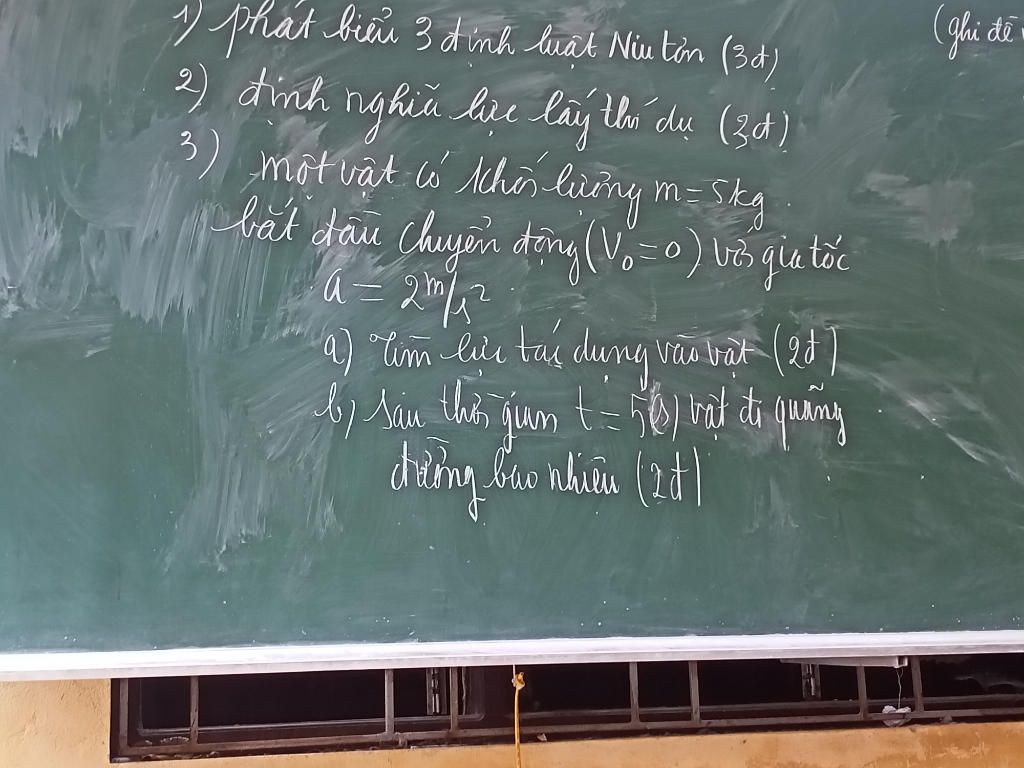 1) phát biểu 3 định luật Niu tơn (3đ)
(ghi đề
2) định nghĩa lực lấy thí dụ (3đ)
3) một vật có khối lượng m = 5kg.
bắt đầu chuyển động (V₀ = 0) với gia tốc
a = 2m/s²
a) Tìm lực tác dụng vào vật (2đ)
b) sau thời gian t = 5(s) vật đi quãng
đường bao nhiêu (2đ)